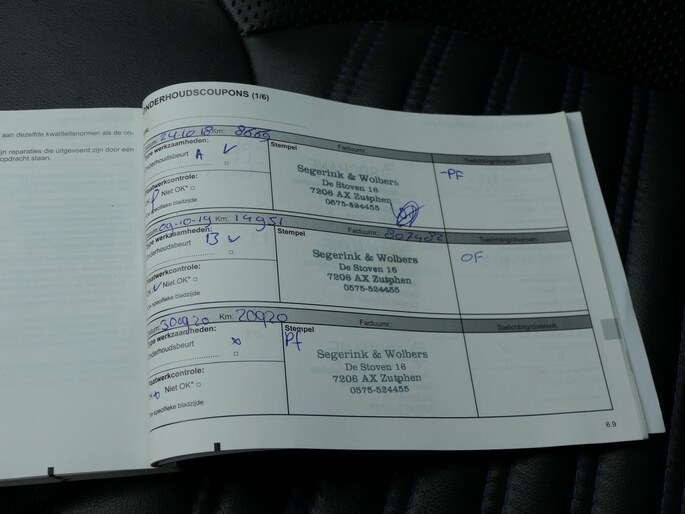 aan dezelfde kwaliteitsnormen als de on-
ijn reparaties die uitgevoerd zijn door een
opdracht staan.
ONDERHOUDSCOUPONS (1/6)
24-10-18 Km: 8669
Type werkzaamheden:
Onderhoudsbeurt A
Stempel
Factuurnr.:
Toelichting/diversen
-PF
Segerink & Wolbers
De Stoven 16
7206 AX Zutphen
0575-524455
Plaatwerkcontrole:
Niet OK*
specifieke bladzijde
09-10-19 Km: 14951
Type werkzaamheden:
Onderhoudsbeurt B
Stempel
Factuurnr.:
Toelichting/diversen
OF
Segerink & Wolbers
De Stoven 16
7206 AX Zutphen
0575-524455
Plaatwerkcontrole:
OK Niet OK*
specifieke bladzijde
Datum: 300920 Km: 20920
Type werkzaamheden:
Onderhoudsbeurt
Stempel
Factuurnr.:
Toelichting/diversen
Pf
Segerink & Wolbers
De Stoven 16
7206 AX Zutphen
0575-524455
Plaatwerkcontrole:
Niet OK*
specifieke bladzijde
6.9